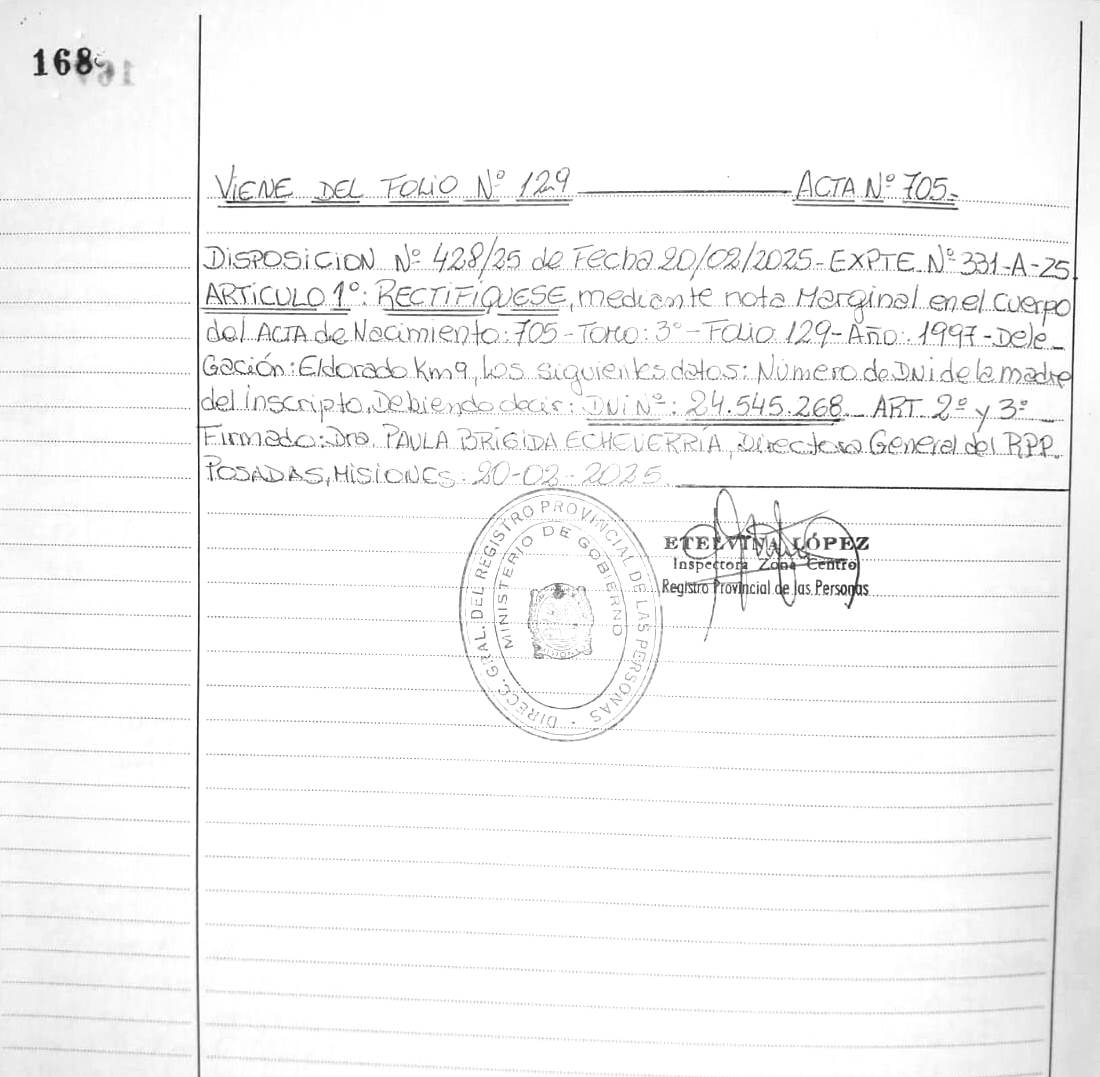 168
VIENE DEL FOLIO Nº 129 ACTA Nº 705.-
DISPOSICION Nº 428/25 de Fecha 20/02/2025 - EXPTE Nº 331-A-25
ARTICULO 1º: RECTIFÍQUESE, mediante nota Marginal en el cuerpo
del ACTA de Nacimiento: 705 - Tomo: 3º - Folio 129 - Año: 1997 - Dele_
Gación: Eldorado Km 9, Los siguientes datos: Número de DNI de la madre
del inscripto, Debiendo decir: DNI Nº: 24.545.268 _ ART. 2º y 3º _
Firmado: Dra. PAULA BRÍGIDA ECHEVERRÍA, Directora General del RPP.
POSADAS, MISIONES: 20-02-2025
DIRECC. GRAL. DEL REGISTRO PROVINCIAL DE LAS PERSONAS
MINISTERIO DE GOBIERNO
ETELVINA LÓPEZ
Inspectora Zona Centro
Registro Provincial de las Personas